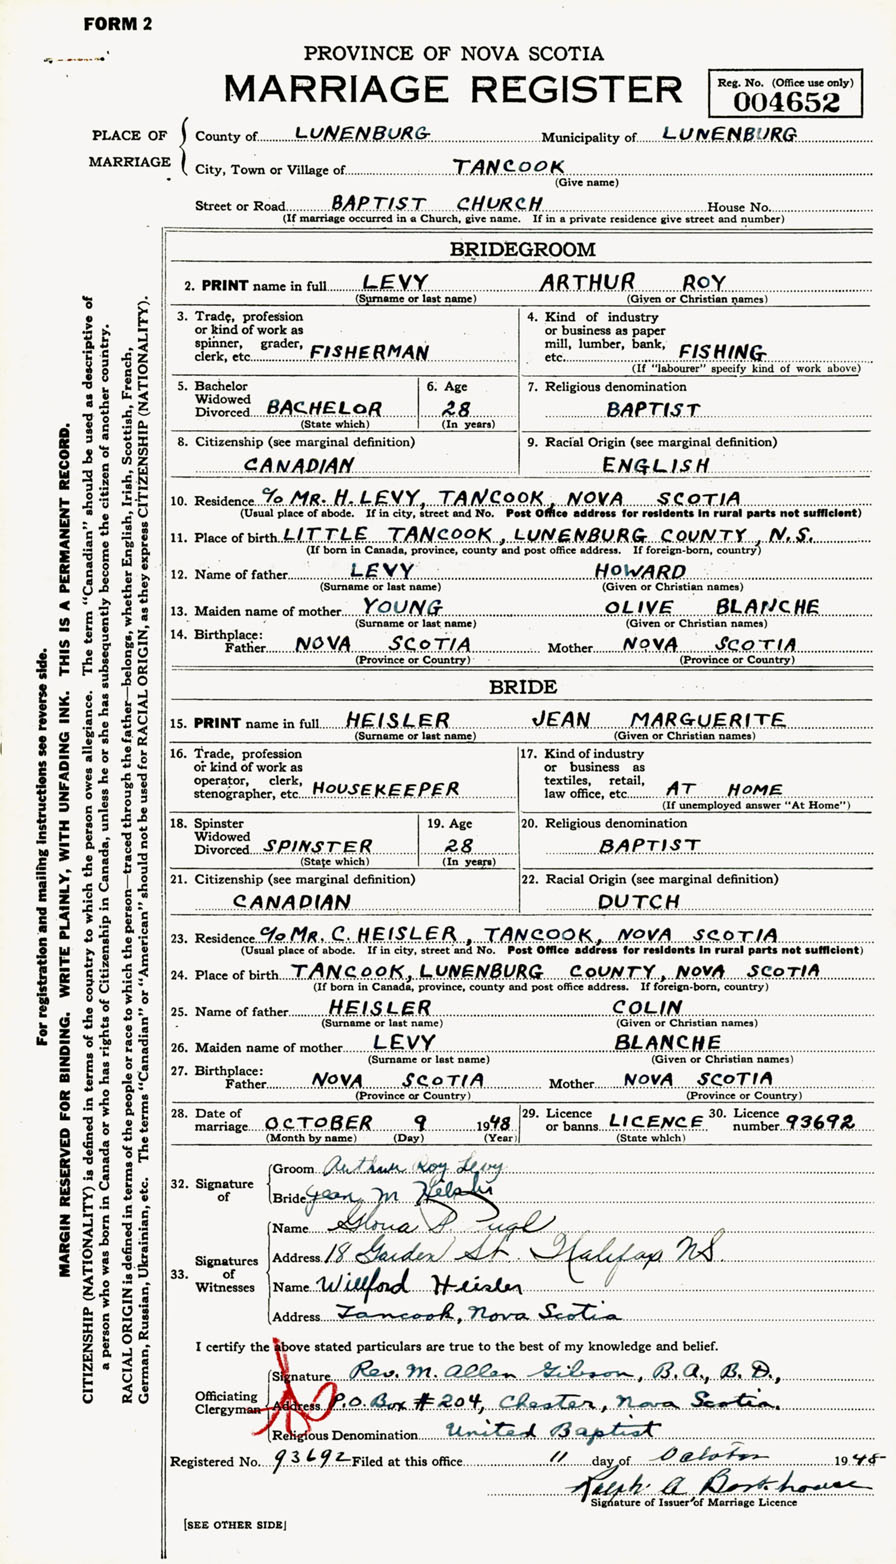 FORM 2
PROVINCE OF NOVA SCOTIA
MARRIAGE REGISTER
Reg. No. (Office use only)
004652
PLACE OF MARRIAGE
County of LUNENBURG Municipality of LUNENBURG
City, Town or Village of TANCOOK
(Give name)
Street or Road BAPTIST CHURCH House No.
(If marriage occurred in a Church, give name. If in a private residence give street and number)
BRIDEGROOM
2. PRINT name in full LEVY ARTHUR ROY
(Surname or last name) (Given or Christian names)
3. Trade, profession or kind of work as spinner, grader, clerk, etc. FISHERMAN
4. Kind of industry or business as paper mill, lumber, bank, etc. FISHING
(If "labourer" specify kind of work above)
5. Bachelor Widowed Divorced BACHELOR
(State which)
6. Age 28
(In years)
7. Religious denomination
BAPTIST
8. Citizenship (see marginal definition)
CANADIAN
9. Racial Origin (see marginal definition)
ENGLISH
10. Residence c/o MR. H. LEVY, TANCOOK, NOVA SCOTIA
(Usual place of abode. If in city, street and No. Post Office address for residents in rural parts not sufficient)
11. Place of birth LITTLE TANCOOK, LUNENBURG COUNTY, N.S.
(If born in Canada, province, county and post office address. If foreign-born, country)
12. Name of father LEVY HOWARD
(Surname or last name) (Given or Christian names)
13. Maiden name of mother YOUNG OLIVE BLANCHE
(Surname or last name) (Given or Christian names)
14. Birthplace:
Father NOVA SCOTIA Mother NOVA SCOTIA
(Province or Country) (Province or Country)
BRIDE
15. PRINT name in full HEISLER JEAN MARGUERITE
(Surname or last name) (Given or Christian names)
16. Trade, profession or kind of work as operator, clerk, stenographer, etc. HOUSEKEEPER
17. Kind of industry or business as textiles, retail, law office, etc. AT HOME
(If unemployed answer "At Home")
18. Spinster Widowed Divorced SPINSTER
(State which)
19. Age 28
(In years)
20. Religious denomination
BAPTIST
21. Citizenship (see marginal definition)
CANADIAN
22. Racial Origin (see marginal definition)
DUTCH
23. Residence c/o MR. C. HEISLER, TANCOOK, NOVA SCOTIA
(Usual place of abode. If in city, street and No. Post Office address for residents in rural parts not sufficient)
24. Place of birth TANCOOK, LUNENBURG COUNTY, NOVA SCOTIA
(If born in Canada, province, county and post office address. If foreign-born, country)
25. Name of father HEISLER COLIN
(Surname or last name) (Given or Christian names)
26. Maiden name of mother LEVY BLANCHE
(Surname or last name) (Given or Christian names)
27. Birthplace:
Father NOVA SCOTIA Mother NOVA SCOTIA
(Province or Country) (Province or Country)
28. Date of marriage OCTOBER 9 1948
(Month by name) (Day) (Year)
29. Licence or banns LICENCE
(State which)
30. Licence number 93692
32. Signature of
Groom Arthur Roy Levy
Bride Jean M Heisler
33. Signatures of Witnesses
Name Gloria
Address 18 Garden St. Halifax NS.
Name Willford Heisler
Address Tancook, Nova Scotia
I certify the above stated particulars are true to the best of my knowledge and belief.
Officiating Clergyman
Signature Rev. M. Allen Gibson, B.A., B.D.,
Address P.O. Box #204, Chester, Nova Scotia.
Religious Denomination United Baptist
Registered No. 93692 Filed at this office 11 day of October 1948
Ralph A
Signature of Issuer of Marriage Licence
[SEE OTHER SIDE]
For registration and mailing instructions see reverse side.
MARGIN RESERVED FOR BINDING. WRITE PLAINLY, WITH UNFADING INK. THIS IS A PERMANENT RECORD.
CITIZENSHIP (NATIONALITY) is defined in terms of the country to which the person owes allegiance. The term "Canadian" should be used as descriptive of
a person who was born in Canada or who has rights of Citizenship in Canada, unless he or she has subsequently become the citizen of another country.
RACIAL ORIGIN is defined in terms of the people or race to which the person—traced through the father—belongs, whether English, Irish, Scottish, French,
German, Russian, Ukrainian, etc. The terms "Canadian" or "American" should not be used for RACIAL ORIGIN, as they express CITIZENSHIP (NATIONALITY).